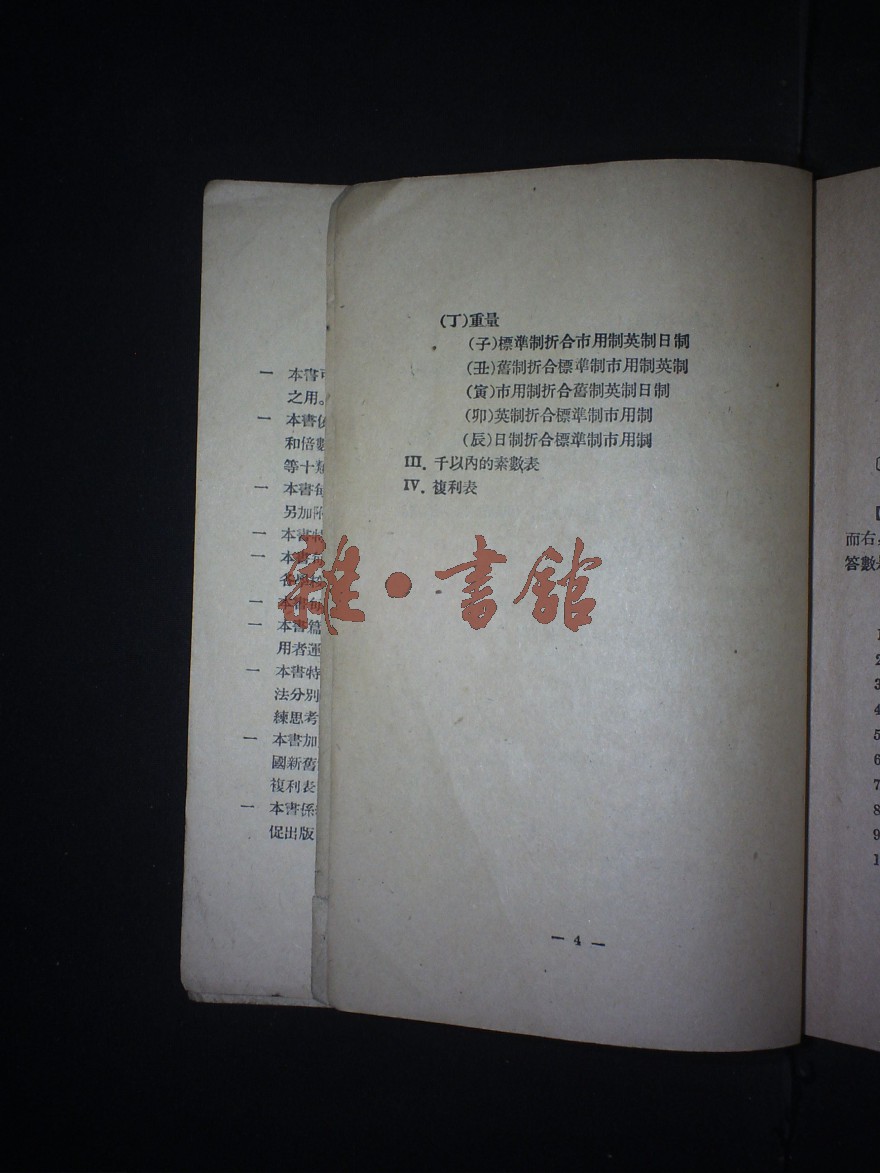 (丁)重量
(子)標準制折合市用制英制日制
(丑)舊制折合標準制市用制英制
(寅)市用制折合舊制英制日制
(卯)英制折合標準制市用制
(辰)日制折合標準制市用制
III. 千以內的素數表
IV. 複利表
— 4 —
一 本書可
之用。
一 本書係
和倍數
等十類
一 本書每
另加附
一 本書特
一 本書
一 本書
一 本書篇
用者運
一 本書特
法分別
練思考
一 本書加
國新舊
複利表
一 本書係
促出版
雜·書館
而右
答數
1
2
3
4
5
6
7
8
9
1